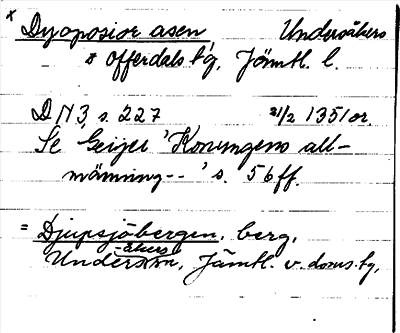 x Dyoposior asen Undersåkers
o Offerdals tg, Jämtl. l.
DN 3, s. 227 21/2 1351 or.
Se Geijer "Konungens all-
männing--" s. 56 ff.
= Djupsjöbergen, berg,
Undersåkers, Jämtl. v. doms. tg,